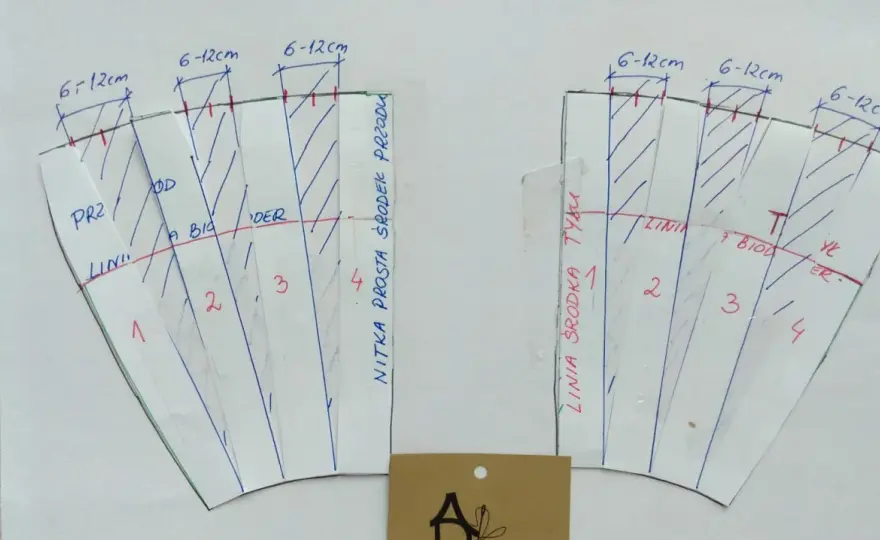 6-12cm
6-12cm
6-12cm
PRZ
ÓD
LINII
A BIO
DER
1
2
3
4
NITKA PROSTA ŚRODEK PRZODU
6-12cm
6-12cm
6-12c
LINIA ŚRODKA TYŁU
LINIA
BIOD
ER.
T
YŁ
1
2
3
4